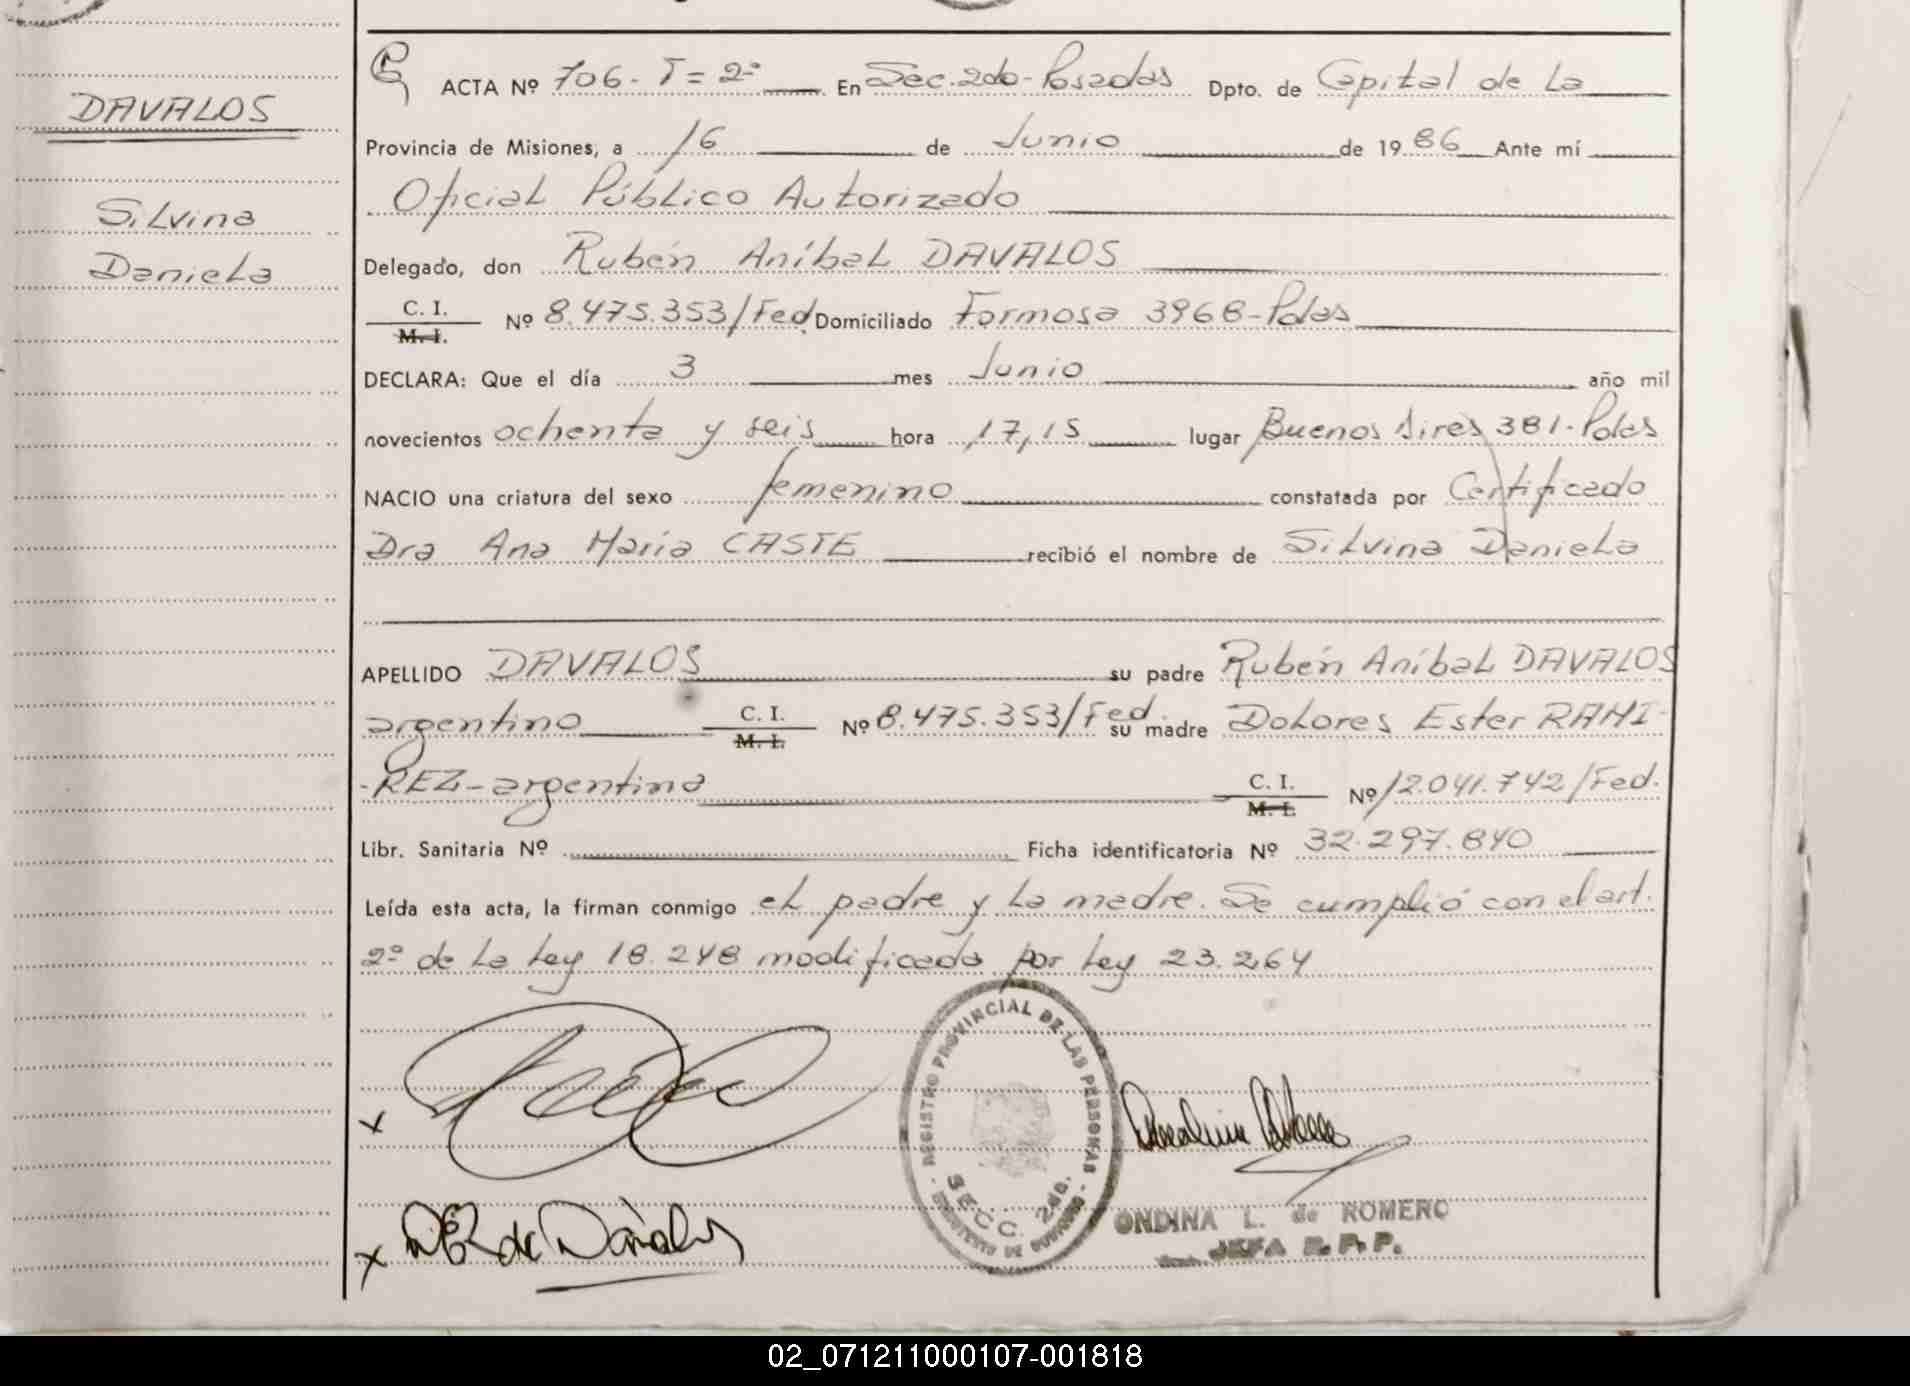 DAVALOS
Silvina
Daniela
ACTA Nº 706- T=2º En Sec.2do-Posadas Dpto. de Capital de La
Provincia de Misiones, a 16 de Junio de 1986 Ante mí
Oficial Público Autorizado
Delegado, don Rubén Aníbal DAVALOS
C. I.
M. I.
Nº 8.475.353/Fed. Domiciliado Formosa 3968-Pdas
DECLARA: Que el día 3 mes Junio año mil
novecientos ochenta y seis hora 17,15 lugar Buenos Aires 381-Pdas
NACIO una criatura del sexo femenino constatada por Certificado
Dra Ana María CASTE recibió el nombre de Silvina Daniela
APELLIDO DAVALOS su padre Rubén Aníbal DAVALOS
argentino C. I. Nº 8.475.353/Fed. su madre Dolores Ester RAMI-
M. I.
-REZ-argentina C. I. Nº 12.041.742/Fed.
M. I.
Libr. Sanitaria Nº Ficha identificatoria Nº 32.297.840
Leída esta acta, la firman conmigo el padre y la madre. Se cumplió con el art.
2º de la Ley 18.248 modificada por Ley 23.264
REGISTRO PROVINCIAL DE LAS PERSONAS
SECC. 2da.
x
x de Dávalos
ONDINA L. de ROMERO
JEFA R. P. P.
02_071211000107-001818